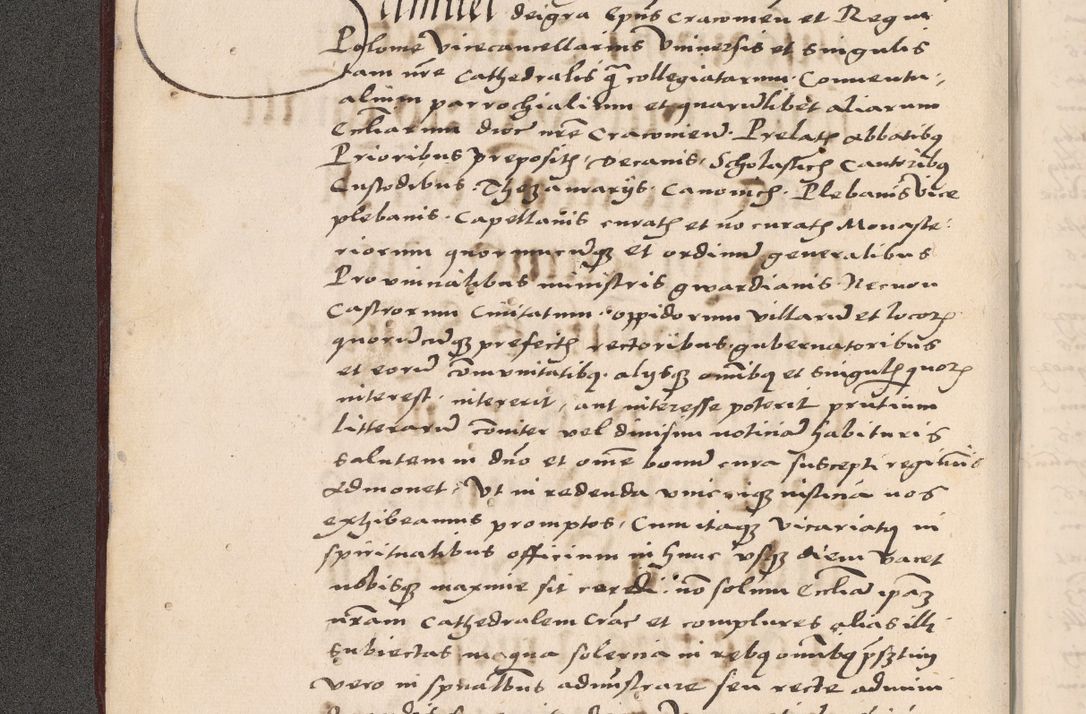 Samuel dei gra Epūs Cracovieñ et Regni
Polonie Vicecancellarius Vniuersis et Singulis
tam nre Cathedralis q̃ collegiatarum Conuentu,
alium parrochialium et quarūlibet aliarum
Ecctiarum dioc nrē Cracovieñ. Prelatis Abbatibq
Prioribus prepositis, Decanis, Scholasticis Cantoribq
Custodibus Thezaurarijs Canonicis. Plebanis Vice
plebanis. Capellanis curatis et nō curatis Monaste:
riorum quorumcūqz et ordinū generalibus
Provincialibus ministris gwardianis. Necnon
Castrorum Civitatum oppidorum villarū et locorz
quorūcūqz prefectis rectoribus gubernatoribus
et eorū cōmunitatibq. alijsqz omībq et Singulis quorz
interest, intererit, aut interesse poterit pñtium
litterarū cōniter vel diuisim noticiā habituris
Salutem in dño et omē bonū cura suscepti regiminis
admonet, Vt in reddenda vnicuiqz iusticia nos
exhibeamus promptos, Cum itaqz Vicariatq in
spiritualibus officium in hunc vsqz diem Vacet
nobisqz maxime sit cordi nō solum Ecctiā ipaz
nram Cathedralem Crac et complures alias illi
Subiectas magna solercia in rebq omībq pñtim
vero in spualibus administrare seu recte admini